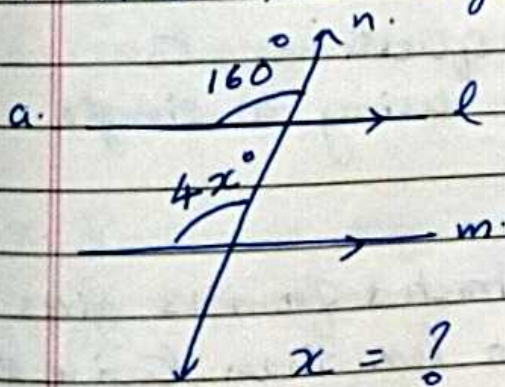 n.
160°
a. l
4x°
m.
x = ?